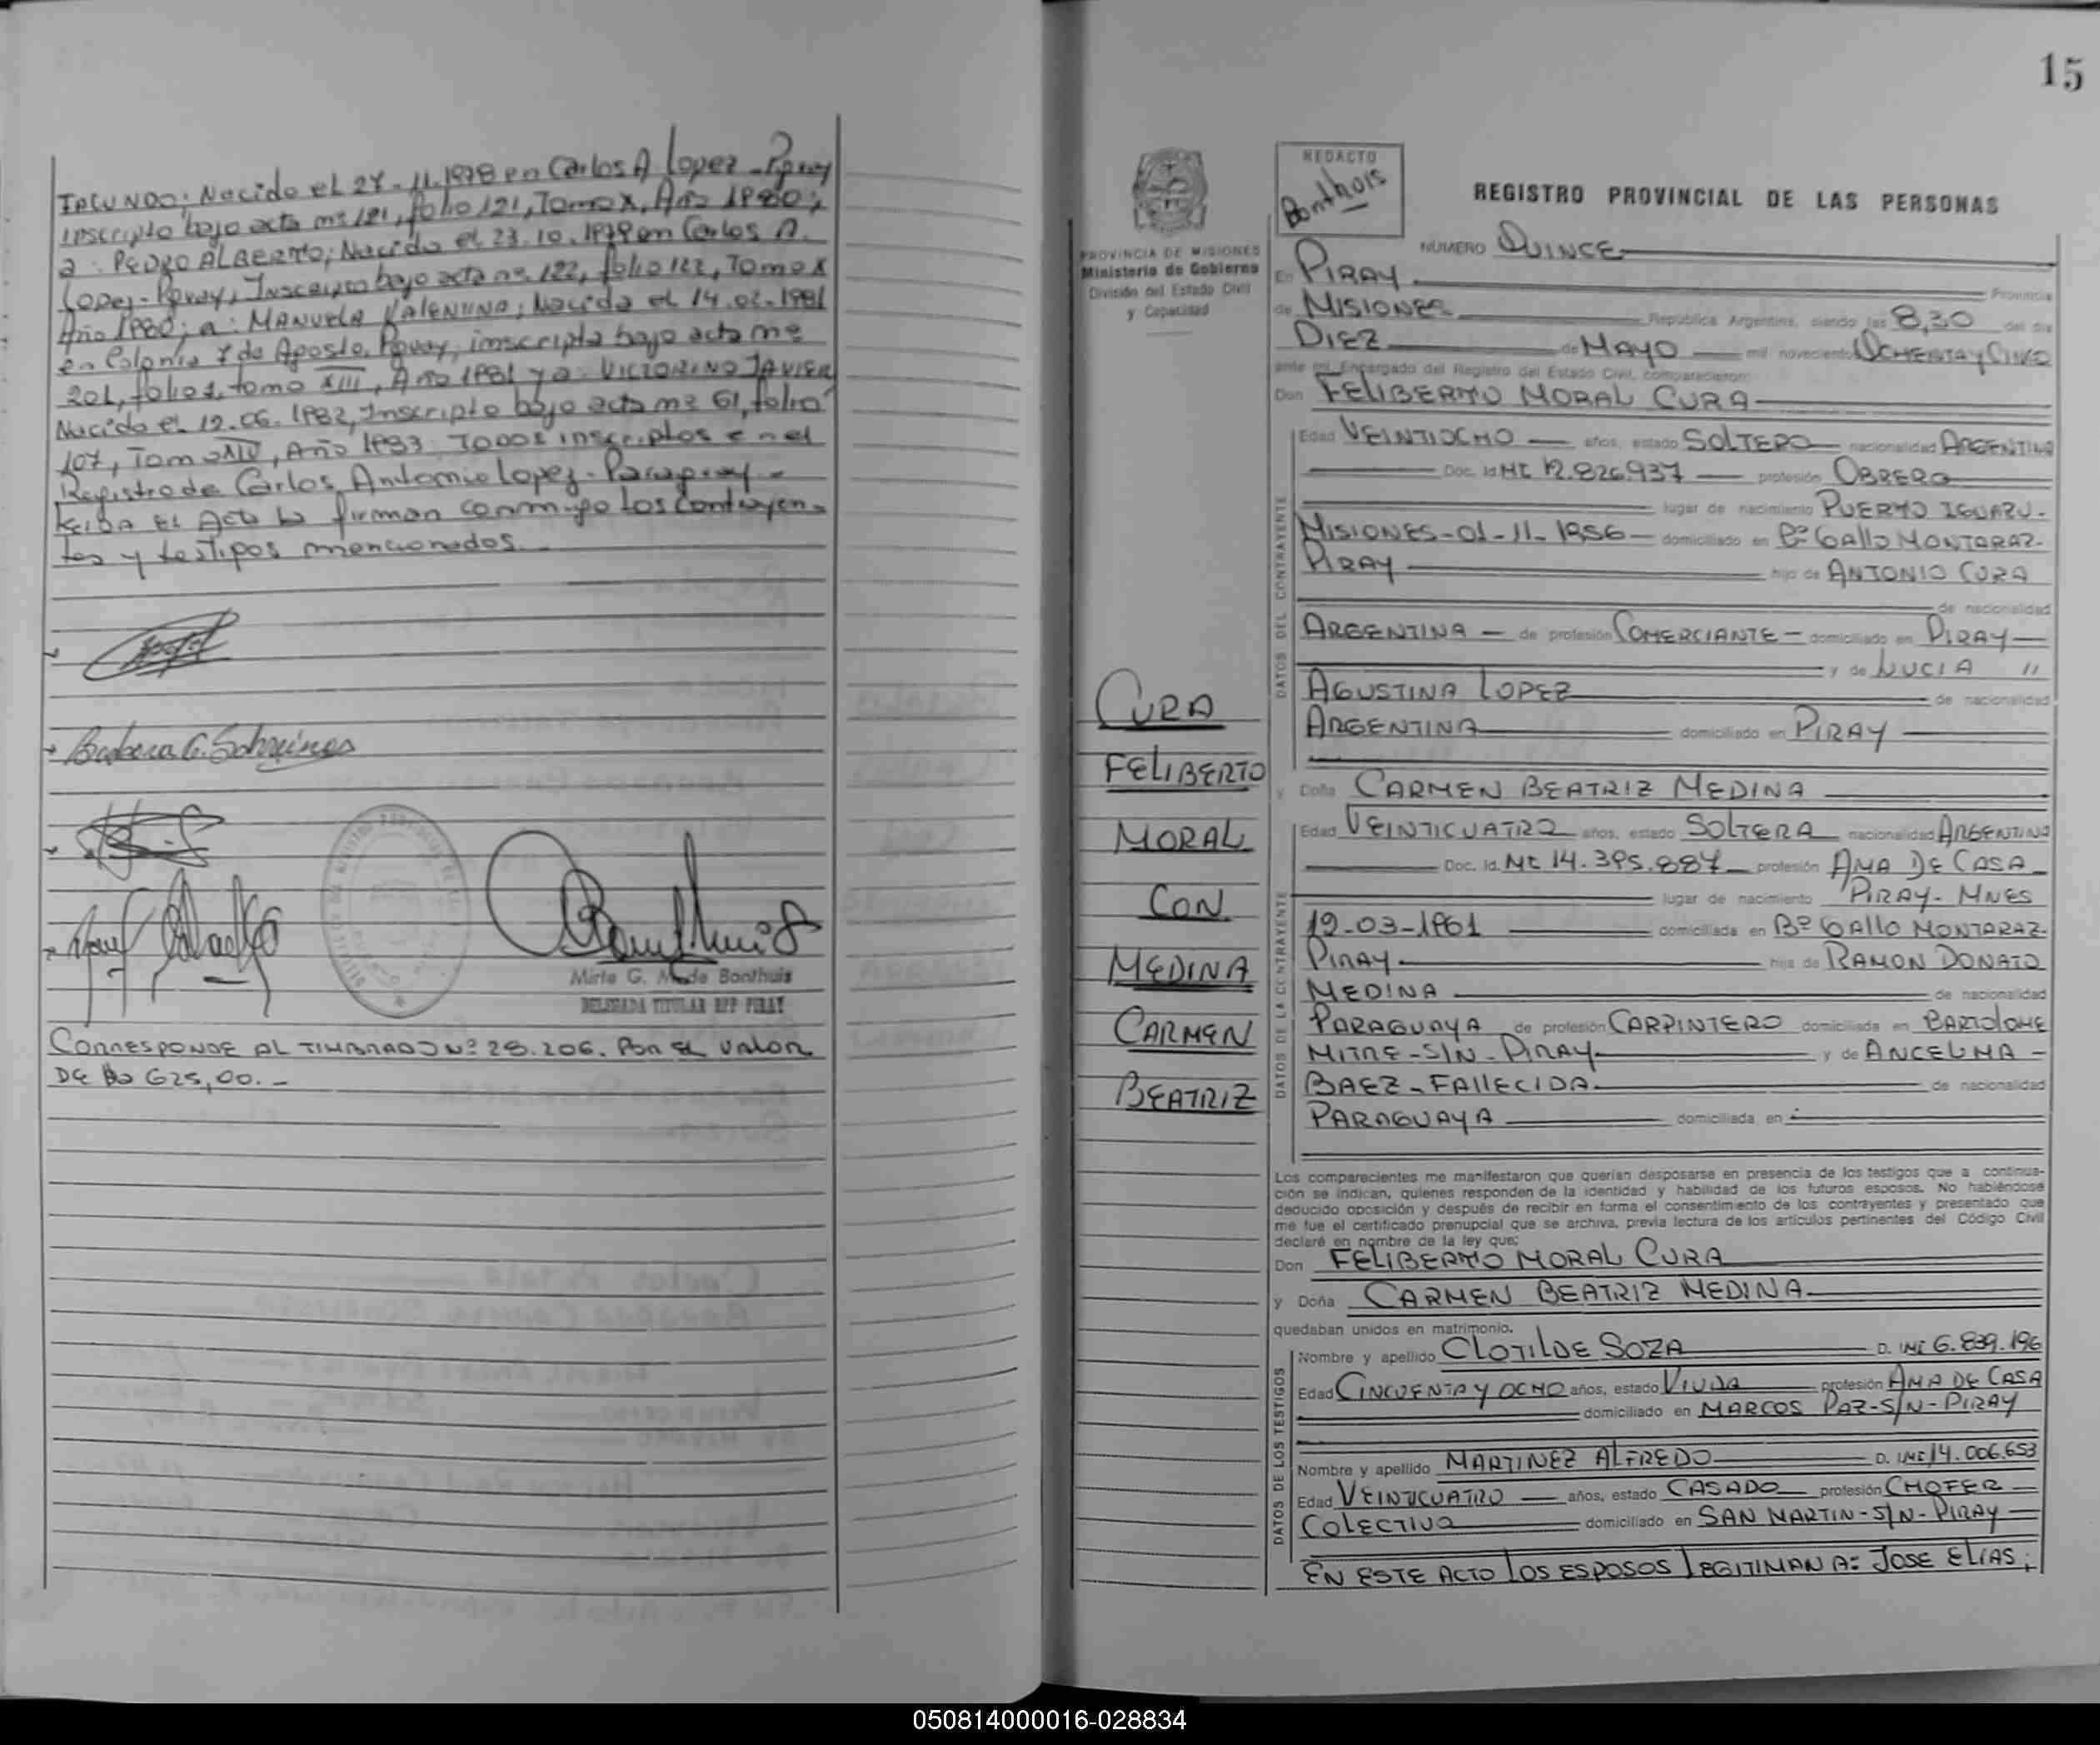 FACUNDO; Nacido el 27-11.1978 en Carlos A. Lopez-Pguay
inscripto bajo acta nº 121, folio 121, Tomo X, Año 1980;
a: PEDRO ALBERTO; Nacido el 23.10.1979 en Carlos A.
Lopez-Pguay, Inscripto bajo acta nº 122, folio 122, Tomo X
Año 1980; a: MANUELA VALENTINA; Nacida el 14.02.1981
en Colonia 7 de Agosto, Pguay, inscripta bajo acta nº
201, folio 1, tomo XIII, Año 1981 y a: VICTORINO JAVIER
Nacido el 12.06.1982, Inscripto bajo acta nº 61, folio
107, Tomo XIV, Año 1983. Todos inscriptos en el
Registro de Carlos Antonio Lopez-Paraguay-
LEIDA EL Acta la firman conmigo los contrayen-
tes y testigos mencionados.
Barbara G. Schreiner
Mirta G. M. de Bonthuis
DELEGADA TITULAR RPP PIRAY
CORRESPONDE AL TIMBRADO Nº 28.206. POR EL VALOR
DE $a 625,00.-
15
REDACTO
Bonthuis
REGISTRO PROVINCIAL DE LAS PERSONAS
PROVINCIA DE MISIONES
Ministerio de Gobierno
División del Estado Civil
y Capacidad
NUMERO QUINCE
En PIRAY Provincia
de MISIONES República Argentina, siendo las 8,30 del día
DIEZ de MAYO mil novecientos OCHENTA Y CINCO
ante mí, Encargado del Registro del Estado Civil, comparecieron:
Don FELIBERTO MORAL CURA
DATOS DEL CONTRAYENTE
Edad VEINTIOCHO años, estado SOLTERO nacionalidad ARGENTINA
Doc. Id. MI 12.826.937 profesión OBRERO
lugar de nacimiento PUERTO IGUAZU-
MISIONES-01-11-1956 domiciliado en Bº GALLO MONTARAZ-
PIRAY hijo de ANTONIO CURA
de nacionalidad
ARGENTINA de profesión COMERCIANTE domiciliado en PIRAY
y de LUCIA "
AGUSTINA LOPEZ de nacionalidad
ARGENTINA domiciliada en PIRAY
CURA
FELIBERTO
MORAL
CON
MEDINA
CARMEN
BEATRIZ
y Doña CARMEN BEATRIZ MEDINA
DATOS DE LA CONTRAYENTE
Edad VEINTICUATRO años, estado SOLTERA nacionalidad ARGENTINA
Doc. Id. MI 14.395.887 profesión AMA DE CASA
lugar de nacimiento PIRAY-MNES
12-03-1961 domiciliada en Bº GALLO MONTARAZ-
PIRAY hija de RAMON DONATO
MEDINA de nacionalidad
PARAGUAYA de profesión CARPINTERO domiciliado en BARTOLOME
MITRE-S/N-PIRAY y de ANCELMA -
BAEZ-FALLECIDA de nacionalidad
PARAGUAYA domiciliada en
Los comparecientes me manifestaron que querían desposarse en presencia de los testigos que a continua-
ción se indican, quienes responden de la identidad y habilidad de los futuros esposos. No habiéndose
deducido oposición y después de recibir en forma el consentimiento de los contrayentes y presentado que
me fue el certificado prenupcial que se archiva, previa lectura de los artículos pertinentes del Código Civil
declaré en nombre de la ley que:
Don FELIBERTO MORAL CURA
y Doña CARMEN BEATRIZ MEDINA
quedaban unidos en matrimonio.
DATOS DE LOS TESTIGOS
Nombre y apellido CLOTILDE SOZA D. INI 6.839.196
Edad CINCUENTA Y OCHO años, estado VIUDA profesión AMA DE CASA
domiciliado en MARCOS PAZ-S/N-PIRAY
Nombre y apellido MARTINEZ ALFREDO D. INI 14.006.653
Edad VEINTICUATRO años, estado CASADO profesión CHOFER
COLECTIVO domiciliado en SAN MARTIN-S/N-PIRAY
EN ESTE ACTO LOS ESPOSOS LEGITIMAN A: JOSE ELIAS;
050814000016-028834